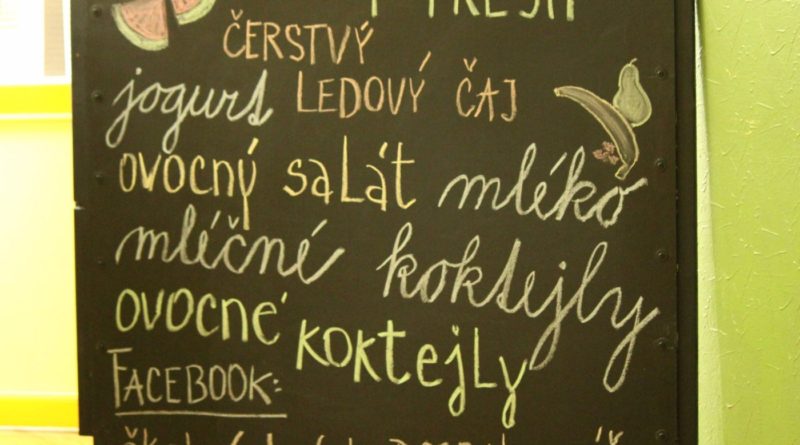 FRESH
ČERSTVÝ
jogurt LEDOVÝ ČAJ
ovocný salát mléko
mléčné koktejly
ovocné koktejly
FACEBOOK: